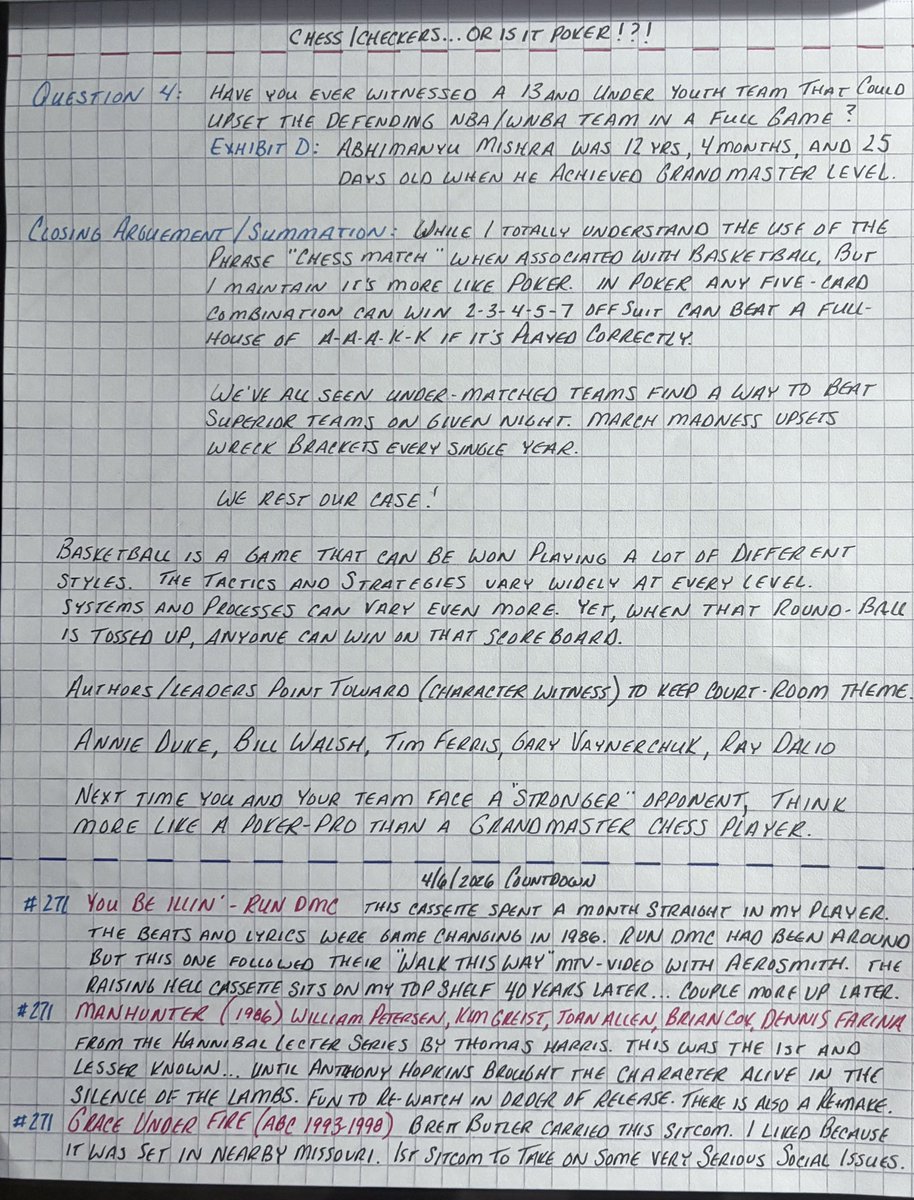 CHESS/CHECKERS... OR IS IT POKER!?!
QUESTION 4: HAVE YOU EVER WITNESSED A 13 AND UNDER YOUTH TEAM THAT COULD
UPSET THE DEFENDING NBA/WNBA TEAM IN A FULL GAME?
EXHIBIT D: ABHIMANYU MISHRA WAS 12 YRS, 4 MONTHS, AND 25
DAYS OLD WHEN HE ACHIEVED GRANDMASTER LEVEL.
CLOSING ARGUEMENT/SUMMATION: WHILE I TOTALLY UNDERSTAND THE USE OF THE
PHRASE "CHESS MATCH" WHEN ASSOCIATED WITH BASKETBALL, BUT
I MAINTAIN IT'S MORE LIKE POKER. IN POKER ANY FIVE-CARD
COMBINATION CAN WIN 2-3-4-5-7 OFF SUIT CAN BEAT A FULL-
HOUSE OF A-A-A-K-K IF IT'S PLAYED CORRECTLY.
WE'VE ALL SEEN UNDER-MATCHED TEAMS FIND A WAY TO BEAT
SUPERIOR TEAMS ON GIVEN NIGHT. MARCH MADNESS UPSETS
WRECK BRACKETS EVERY SINGLE YEAR.
WE REST OUR CASE!
BASKETBALL IS A GAME THAT CAN BE WON PLAYING A LOT OF DIFFERENT
STYLES. THE TACTICS AND STRATEGIES VARY WIDELY AT EVERY LEVEL.
SYSTEMS AND PROCESSES CAN VARY EVEN MORE. YET, WHEN THAT ROUND-BALL
IS TOSSED UP, ANYONE CAN WIN ON THAT SCOREBOARD.
AUTHORS/LEADERS POINT TOWARD (CHARACTER WITNESS) TO KEEP COURT-ROOM THEME.
ANNIE DUKE, BILL WALSH, TIM FERRIS, GARY VAYNERCHUK, RAY DALIO
NEXT TIME YOU AND YOUR TEAM FACE A "STRONGER" OPPONENT, THINK
MORE LIKE A POKER-PRO THAN A GRANDMASTER CHESS PLAYER.
4/6/2026 COUNTDOWN
#271 YOU BE ILLIN' - RUN DMC THIS CASSETTE SPENT A MONTH STRAIGHT IN MY PLAYER.
THE BEATS AND LYRICS WERE GAME CHANGING IN 1986. RUN DMC HAD BEEN AROUND
BUT THIS ONE FOLLOWED THEIR "WALK THIS WAY" MTV-VIDEO WITH AEROSMITH. THE
RAISING HELL CASSETTE SITS ON MY TOP SHELF 40 YEARS LATER... COUPLE MORE UP LATER.
#271 MANHUNTER (1986) WILLIAM PETERSEN, KIM GREIST, JOAN ALLEN, BRIAN COX, DENNIS FARINA
FROM THE HANNIBAL LECTER SERIES BY THOMAS HARRIS. THIS WAS THE 1ST AND
LESSER KNOWN... UNTIL ANTHONY HOPKINS BROUGHT THE CHARACTER ALIVE IN THE
SILENCE OF THE LAMBS. FUN TO RE-WATCH IN ORDER OF RELEASE. THERE IS ALSO A RE-MAKE.
#271 GRACE UNDER FIRE (ABC 1993-1998) BRETT BUTLER CARRIED THIS SITCOM. I LIKED BECAUSE
IT WAS SET IN NEARBY MISSOURI. 1ST SITCOM TO TAKE ON SOME VERY SERIOUS SOCIAL ISSUES.